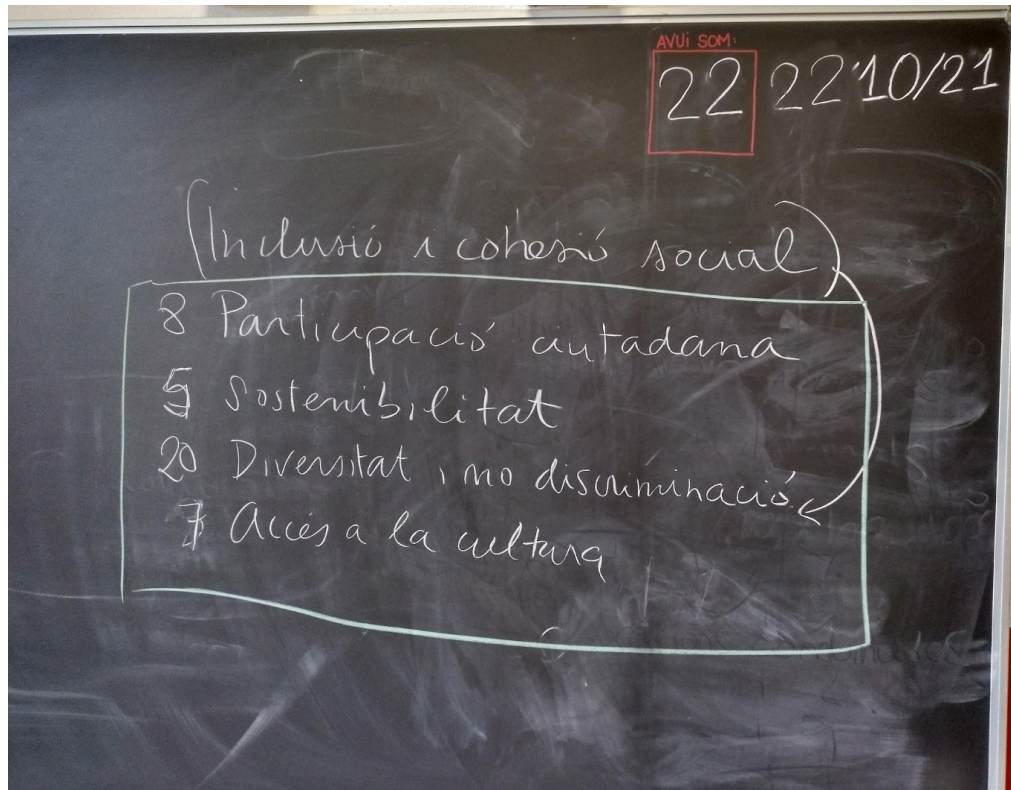 AVUi SOM:
22 22 10/21
(Inclusió i cohesió social)
8 Participació ciutadana
5 Sostenibilitat
20 Diversitat i no discriminació
7 Accés a la cultura